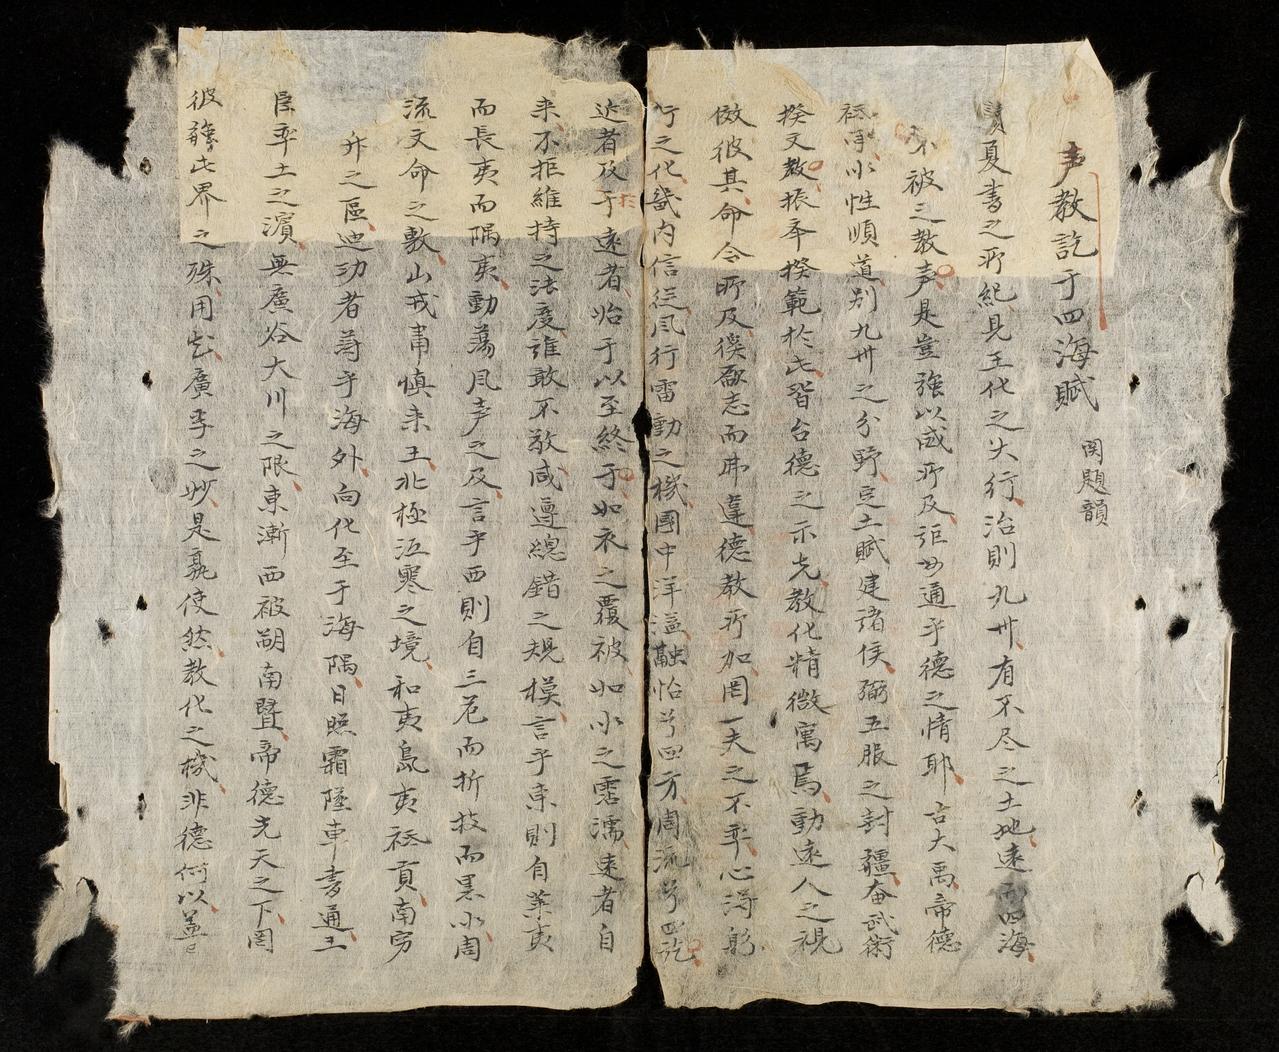 声教訖于四海賦 関題韻
夏書之所紀見王化之大行治則九州有不尽之土地遠而四海
不被之教声是豈強以威所及詎必通乎德之情耶言大禹帝德
祗承水性順道别九州之分野定土賦建諸侯弼五服之封疆奋武術
揆文教振卒揆範於此皆台德之示先教化精微寓焉動遠人之視
傚彼其命令所及徯厥志而弗違德教所加罔一夫之不率心淂躬
行之化畿内信從凨行雷動之機國中洋溢融怡兮四方周流兮四訖
近者及于遠者始于以至終于如衣之覆被如水之霑濡遠者自
来不拒維持之法度誰敢不敬咸遵總錯之規模言乎東則自莱夷
而長夷而隅夷動蕩凨声之及言乎西則自三危而析支而黒水周
流文命之敷山戎肅慎来王北極沍寒之境和夷島夷祗貢南穷
卉之區迪功者蕁乎海外向化至于海隅日照霜墜車書通王
臣率土之濱無廣谷大川之限東漸西被朔南暨帝德光天之下罔
彼疆此界之殊用是廣孚之妙是孰使然教化之機非德何以盖